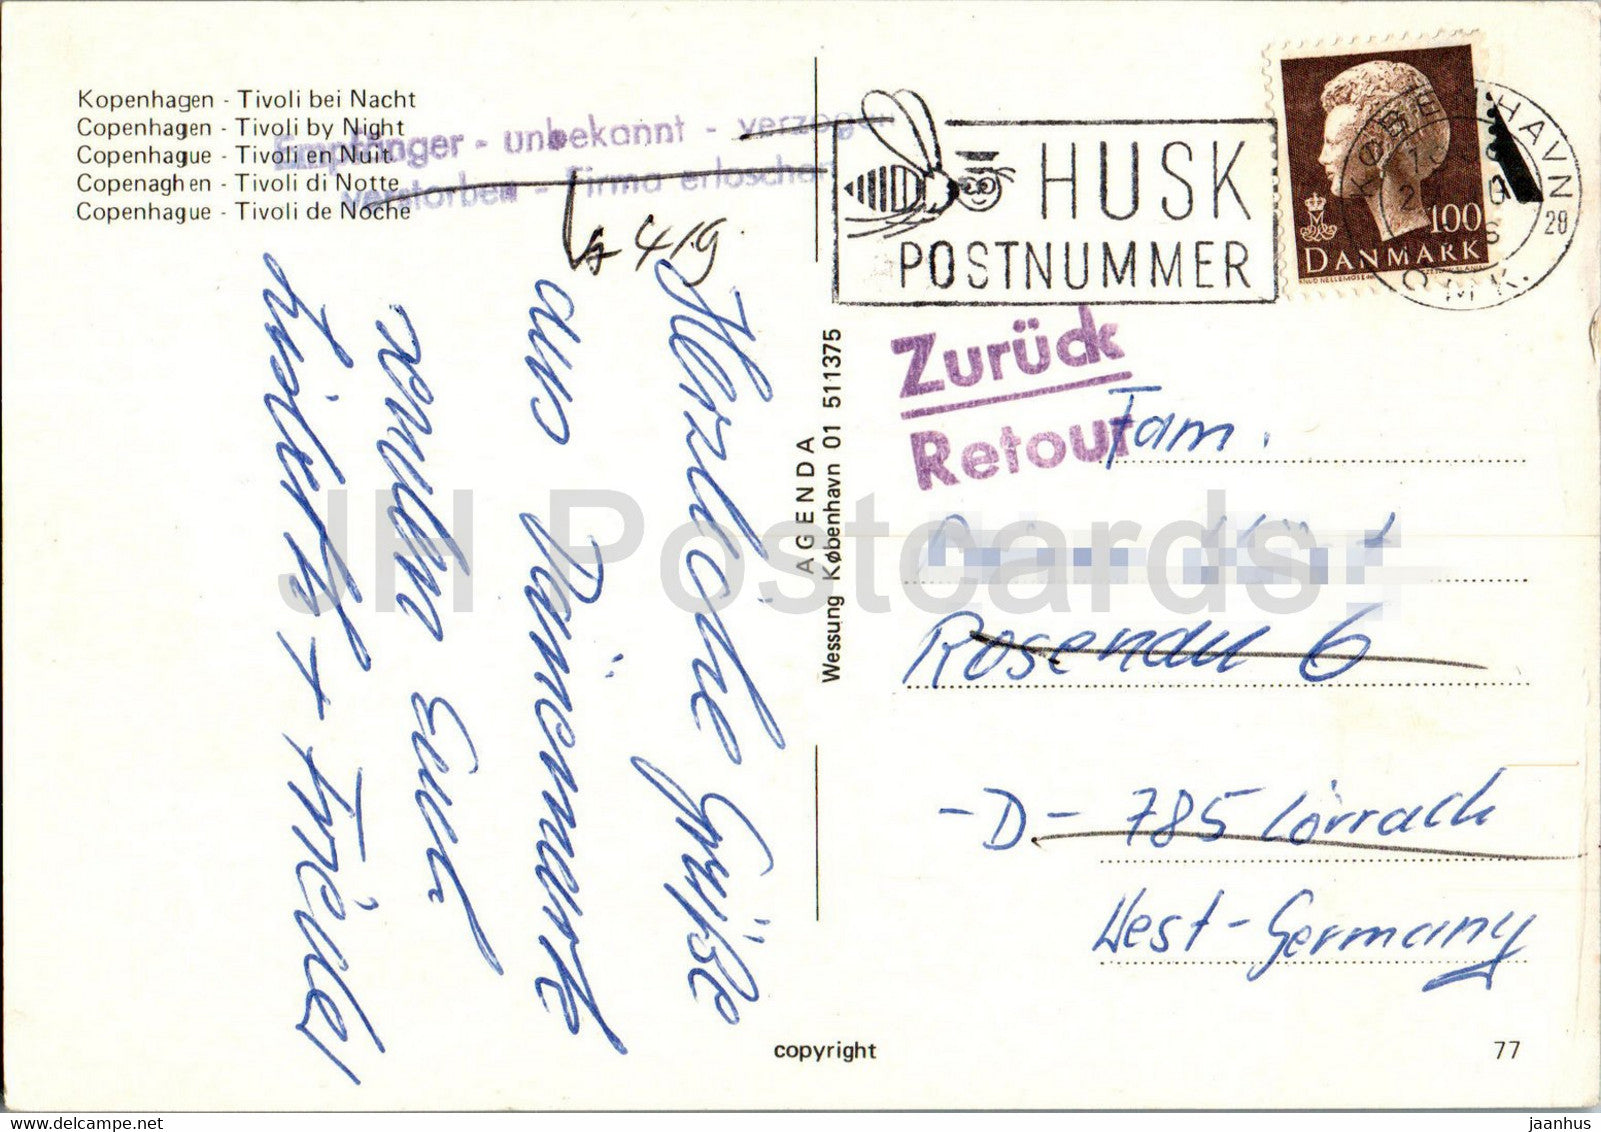 Kopenhagen - Tivoli bei Nacht
Copenhagen - Tivoli by Night
Copenhague - Tivoli en Nuit
Copenaghen - Tivoli di Notte
Copenhague - Tivoli de Noche
Empfänger - unbekannt - verzogen
verstorben - Firma erloschen
419
HUSK
POSTNUMMER
KØBENHAVN
OMK.
28
100
DANMARK
Zurück
Retour
Herzliche Grüße
aus Dänemark
Euch
AGENDA
Wessung København 01 511375
Fam.
Rosenau 6
-D- 785 Lörrach
West-Germany
copyright
77
JH Postcards
jaanhus